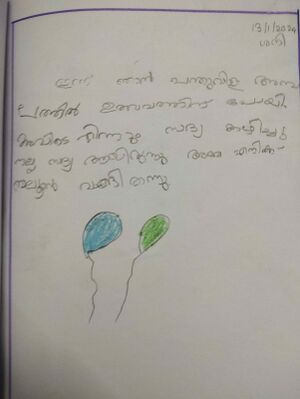 13/1/2024
ശനി
ഇന്ന് ഞാൻ ചന്തുവിള അമ്പ
ലത്തിൽ ഉത്സവത്തിന് പോയി.
അവിടെ നിന്നും സദ്യ കഴിച്ചു
നല്ല സദ്യ ആയിരുന്നു അമ്മ എനിക്ക്
ബലൂൺ വാങ്ങി തന്നു